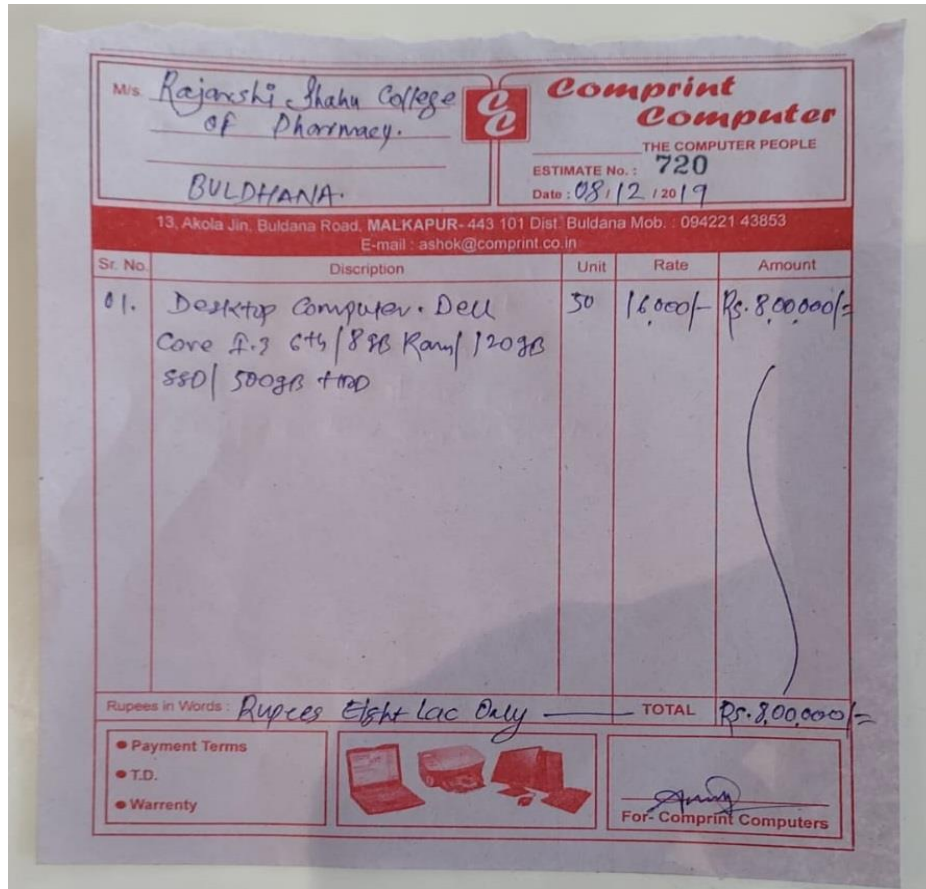 M/s. Rajarshi Shahu College
of Pharmacy.
BULDHANA.
CC
Comprint
Computer
THE COMPUTER PEOPLE
ESTIMATE No. : 720
Date : 08 / 12 / 2019
13, Akola Jin, Buldana Road, MALKAPUR- 443 101 Dist. Buldana Mob. : 094221 43853
E-mail : ashok@comprint.co.in
Sr. No. Discription Unit Rate Amount
01. Desktop Computer. Dell 50 16,000/- Rs. 8,00,000/=
Core I.3 6th / 8 GB Ram / 120 GB
SSD / 500 GB HDD
Rupees in Words : Rupees Eight Lac Only TOTAL Rs. 8,00,000/=
Payment Terms
T.D.
Warrenty
For- Comprint Computers